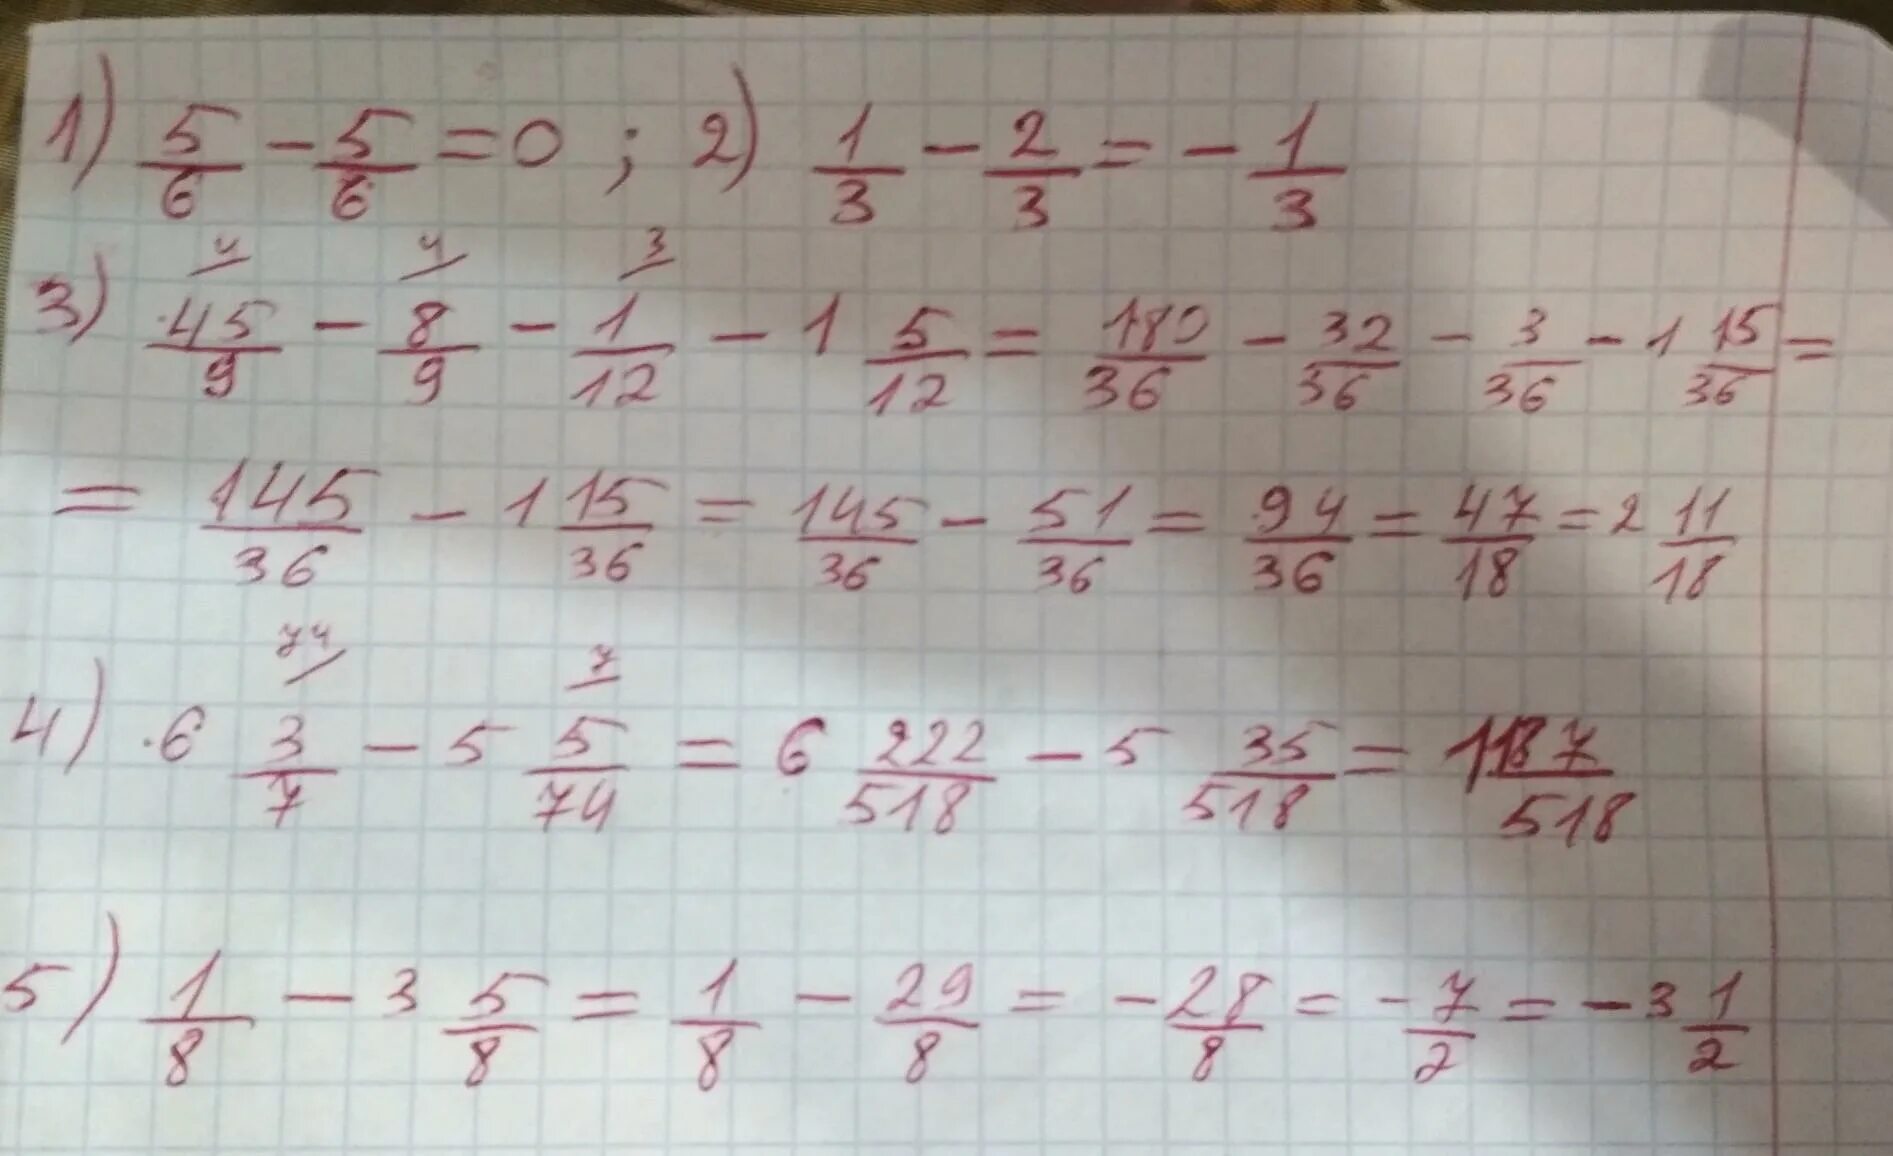 1) 5/6 - 5/6 = 0 ; 2) 1/3 - 2/3 = - 1/3
3) 45/9 - 8/9 - 1/12 - 1 5/12 = 180/36 - 32/36 - 3/36 - 1 15/36 =
= 145/36 - 1 15/36 = 145/36 - 51/36 = 94/36 = 47/18 = 2 11/18
4) 6 3/7 - 5 5/74 = 6 222/518 - 5 35/518 = 1 187/518
5) 1/8 - 3 5/8 = 1/8 - 29/8 = - 28/8 = - 7/2 = - 3 1/2